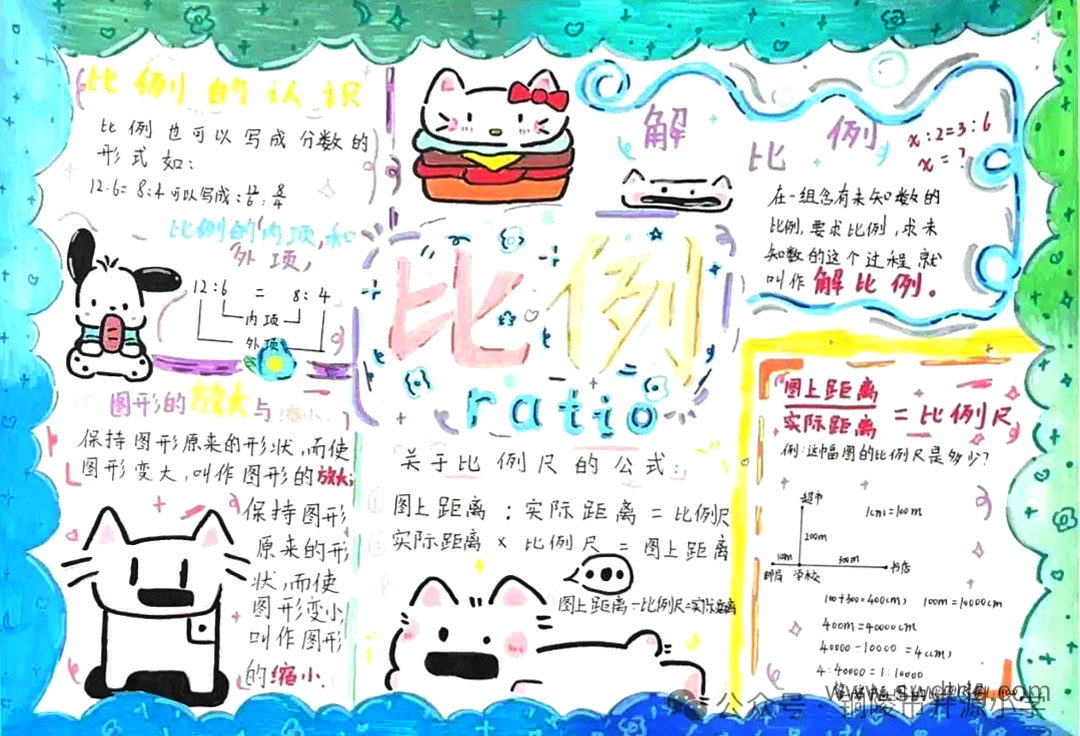 比例的认识
比例也可以写成分数的
形式如:
12:6=8:4可以写成:12/6:8/4
比例的内项,和
外项,
12:6 = 8:4
内项
外项
图形的放大与缩小
保持图形原来的形状,而使
图形变大,叫作图形的放大;
保持图形
原来的形
状,而使
图形变小,
叫作图形
的缩小.
比例
ratio
关于比例尺的公式:
① 图上距离:实际距离=比例尺
② 实际距离×比例尺=图上距离
图上距离÷比例尺=实际距离
解比例
x:2=3:6
x=?
在一组含有未知数的
比例,要求比例,求未
知数的这个过程,就
叫作 解比例。
图上距离
实际距离
=比例尺
例:这幅图的比例尺是多少?
超市
1cm=100m
200m
300m
邮局 学校 书店
400m=40000cm
4:40000=1:10000
公众号·铜陵市开源小学